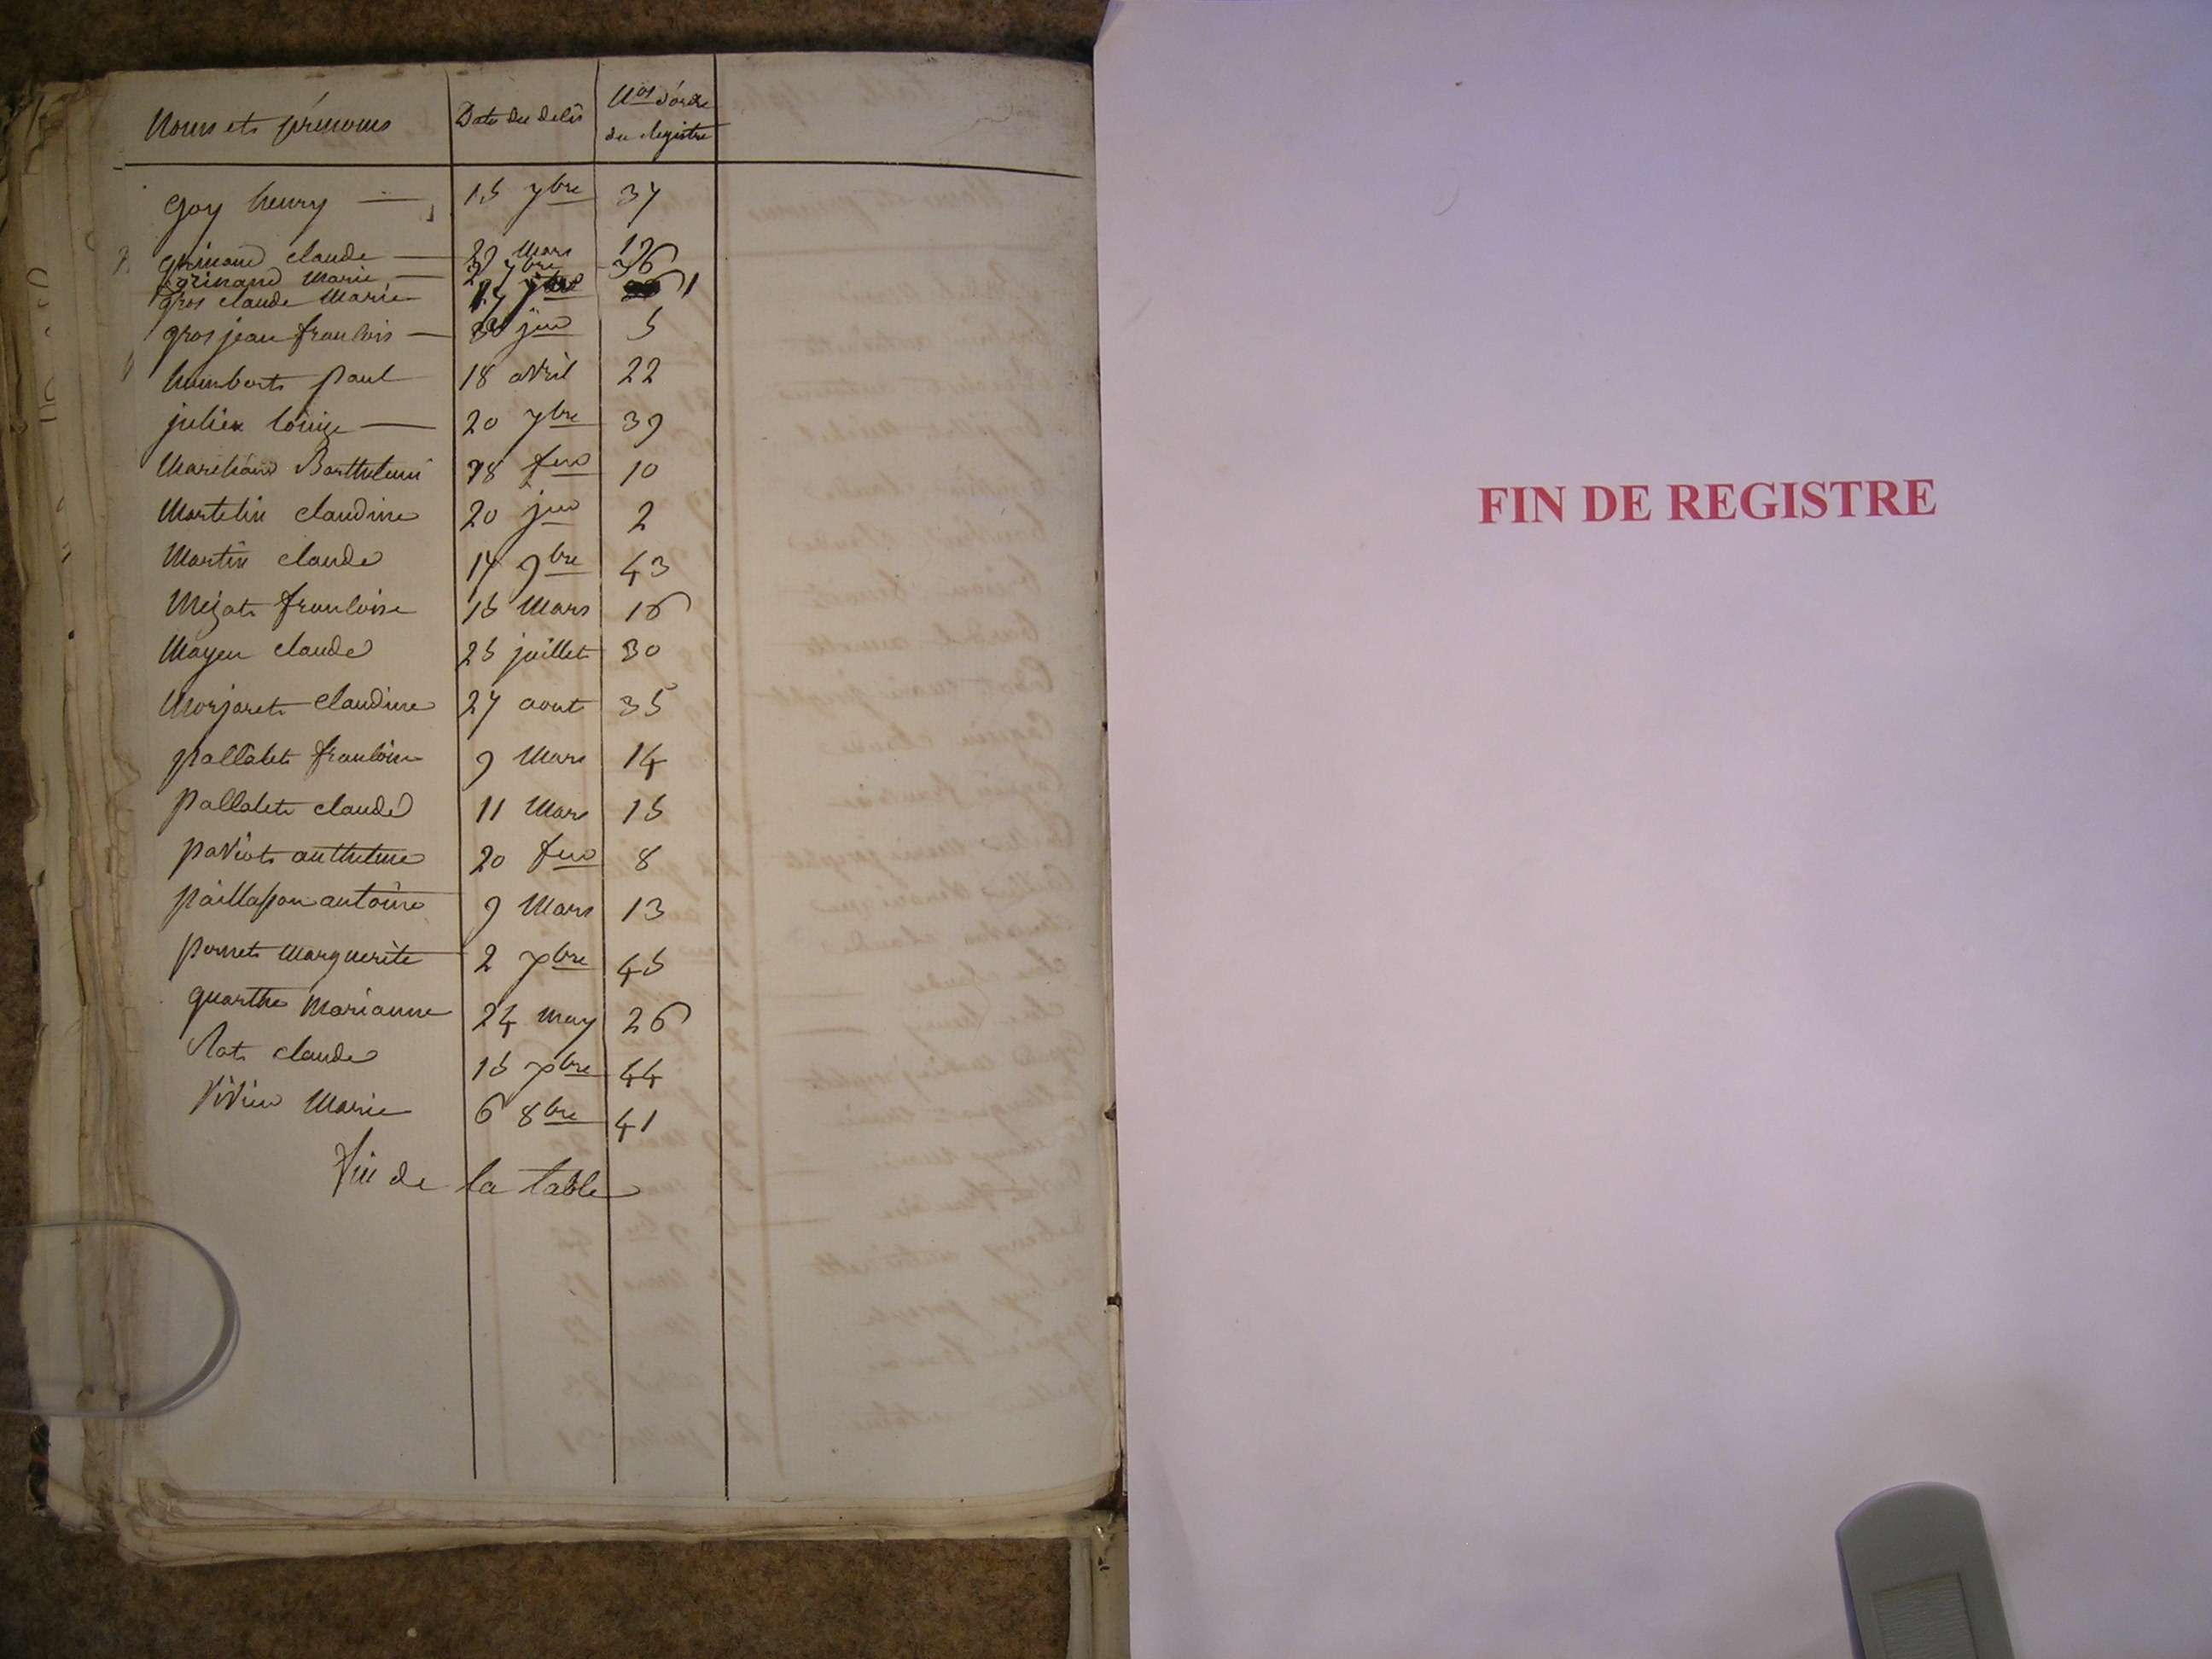 Noms et prénoms Date du délis Nos d'ordre
du Registre
goy henry — 15 7bre 37
grinand claude — 29 Mars
grinand Marie — 7bre 36
gros claude Marie 1
gros jean francois — jer 5
humbert paul 18 avril 22
julien louise — 20 7bre 39
Marchand Barthelemi 28 fer 10
Martelin claudine 20 jer 2
Martin claude 14 9bre 43
Mezat francoise 15 Mars 16
Moyen claude 25 juillet 30
Morjaret claudine 27 aout 35
pallatet francoise 9 Mars 14
pallatet claude 11 Mars 15
paviot anthelme 20 fer 8
paillasson antoine 9 Mars 13
pornet Marguerite 2 xbre 45
quarthe Marianne 24 may 26
Rat claude 15 xbre 44
Vivien Marie 6 8bre 41
fin de la table
FIN DE REGISTRE